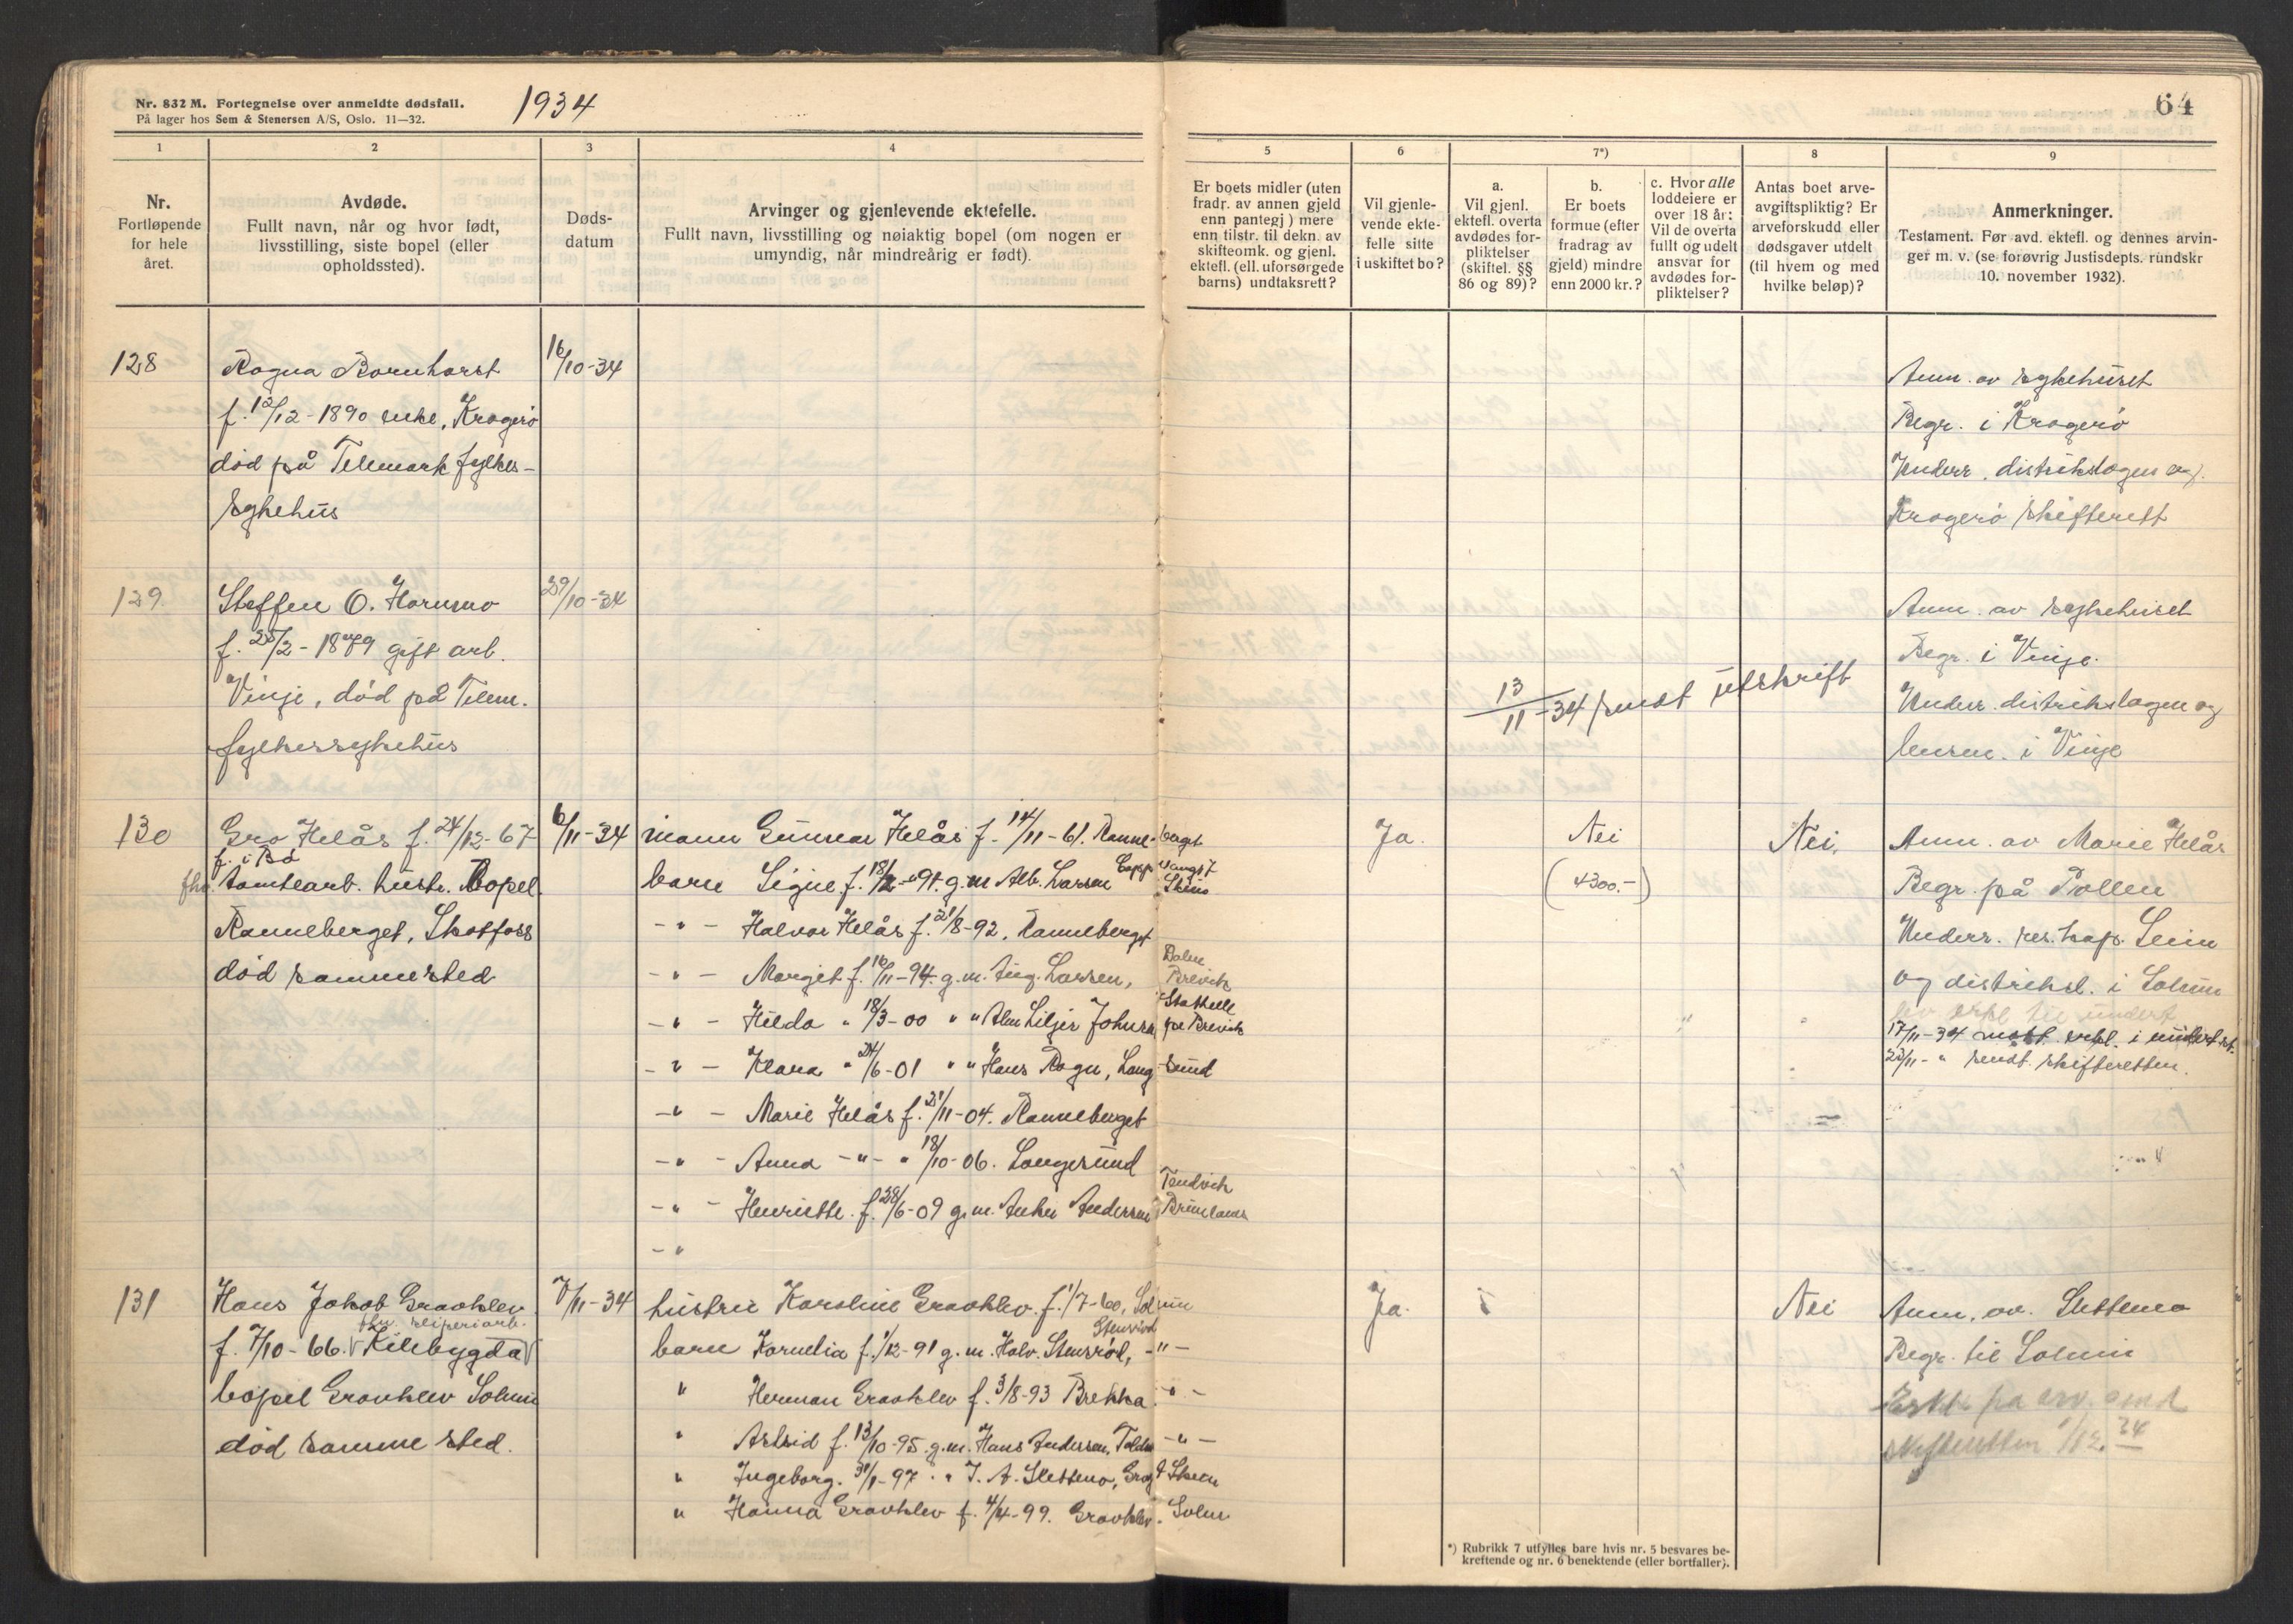 Nr. 832 M. Fortegnelse over anmeldte dødsfall.
På lager hos Sem & Stenersen A/S, Oslo. 11—32.
1934
64
1
2
3
4
5
6
7*)
8
9
Nr.
Fortløpende
for hele
året.
Avdøde.
Fullt navn, når og hvor født,
livsstilling, siste bopel (eller
opholdssted).
Døds-
datum
Arvinger og gjenlevende ektefelle.
Fullt navn, livsstilling og nøiaktig bopel (om nogen er
umyndig, når mindreårig er født).
Er boets midler (uten
fradr. av annen gjeld
enn pantegj) mere
enn tilstr. til dekn. av
skifteomk. og gjenl.
ektefl. (ell. uforsørgede
barns) undtaksrett?
Vil gjenle-
vende ekte-
felle sitte
i uskiftet bo?
a.
Vil gjenl.
ektefl. overta
avdødes for-
pliktelser
(skiftel. §§
86 og 89)?
b.
Er boets
formue (efter
fradrag av
gjeld) mindre
enn 2000 kr.?
c. Hvor alle
loddeiere er
over 18 år:
Vil de overta
fullt og udelt
ansvar for
avdødes for-
pliktelser?
Antas boet arve-
avgiftspliktig? Er
arveforskudd eller
dødsgaver utdelt
(til hvem og med
hvilke beløp)?
Anmerkninger.
Testament. Før avd. ektefl. og dennes arvin-
ger m. v. (se forøvrig Justisdepts. rundskr
10. november 1932).
128
Ragna Bornhorst
f. 12/12-1890 enke, Kragerø
død på Telemark fylkes-
sykehus
16/10-34
Anm. av sykehuset
Begr. i Kragerø
Underr. distrikslogen og
Kragerø skifterett
129
Steffen O. Hornmo
f. 25/2-1879 gift arb.
Vinje, død på Telem.
fylkessykehus
29/10-34
13/11-34 sendt utskrift
Anm. av sykehuset
Begr. i Vinje.
Underr. distrikslogen og
lensm. i Vinje
130
Gro Helås f. 24/12-67
f. i Bø
fhv. tomtearb. hustr. Bopel
Ranneberget, Skotfoss
død sammested
6/11-34
mann Gunnar Helås f. 14/11-61. Ranneberget
barn Signe f. 18/2-91. g.m. Alb. Larsen
Skien
-"- Halvor Helås f. 21/8-92. Ranneberget
-"- Margit f. 16/11-94. g.m. Aug. Larsen, Brevik
-"- Hilda " 18/3-00 " " Johnsen Stathelle
pr Brevik
-"- Klara " 24/6-01 " " Hans Rogn, Langesund
-"- Marie Helås f. 21/11-04. Ranneberget
-"- Anna -"- " 18/10-06. Langesund
-"- Henriette f. 28/6-09 g.m. Anker Andersen
-"
Ja.
Nei
(4300.-)
Nei.
Anm. av Marie Helås
Begr. på Pollen
Underr. res. kap. Seim
og distriksl. i Solum
17/11-34 mott. erkl. i undert. st.
23/11- " sendt skifteretten.
131
Hans Jakob Gravklev
fhv. sliperiarb.
f. 7/10-66. Kilebygda
bopel Gravklev Solum
død samme sted.
7/11-34
hustru Karoline Gravklev f. 1/7-60, Solum
Stensrød
barn Kornelia f. 1/12-91 g.m. Halv. Stensrød, -"-
" Herman Gravklev f. 3/8-93 Brekka. -"-
" Astrid f. 13/10-95. g.m. Hans Andersen, -"-
" Ingeborg. 31/1-97. " J. A. Slettemo, Skien
" Hanna Gravklev f. 4/4-99. Gravklev. Solum
Ja.
Nei
Anm. av. Slettemo
Begr. til Solum
skifteretten 1/12. 34
*) Rubrikk 7 utfylles bare hvis nr. 5 besvares be-
kreftende og nr. 6 benektende (eller bortfaller).